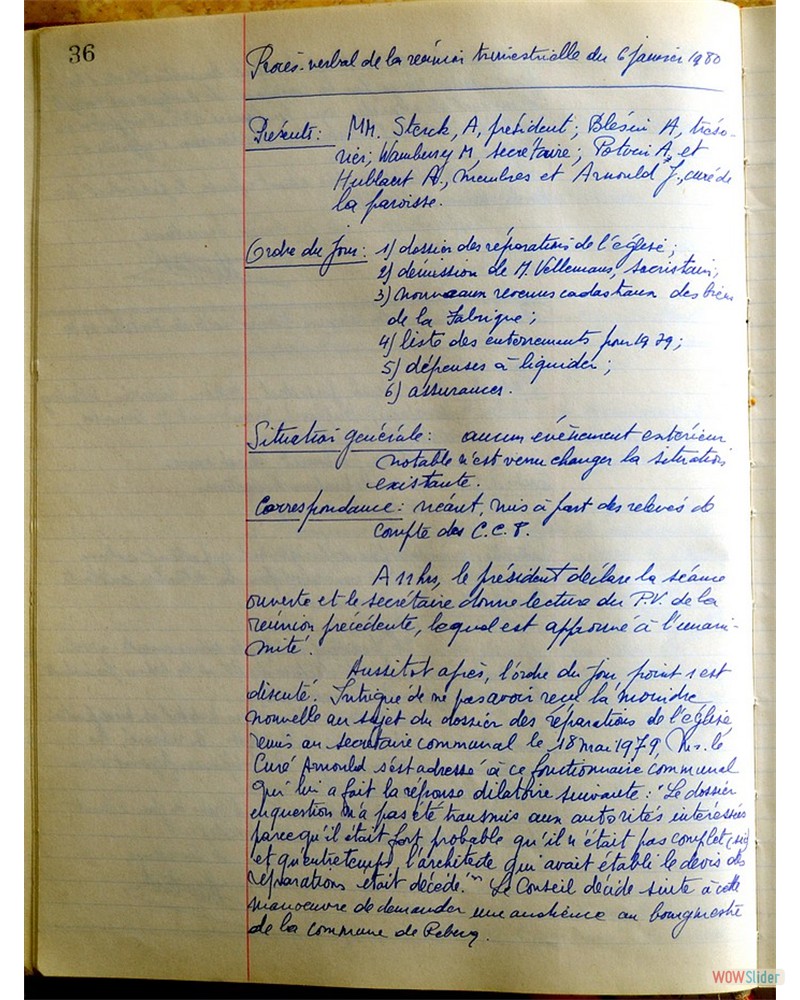 36
Procès-verbal de la réunion trimestrielle du 6 janvier 1980
Présents: MM. Sterck, A, président; Blésin A, tréso-
rier; Wambersy M, secrétaire; Potvin A, et
Hublaert A, membres et Arnould J., curé de
la paroisse.
Ordre du Jour: 1) dossier des réparations de l'église;
2) démission de M. Vellemans, sacristain;
3) nouveaux revenus cadastraux des biens
de la Fabrique;
4) liste des enterrements pour 1979;
5) dépenses à liquider;
6) assurances.
Situation générale: aucun évènement extérieur
notable n'est venu changer la situation
existante.
Correspondance: néant, mis à part des relevés de
compte des C.C.P.
A 11 hrs, le président déclare la séance
ouverte et le secrétaire donne lecture du P.V. de la
réunion précédente, lequel est approuvé à l'unani-
mité.
Aussitot après, l'ordre du Jour, point 1 est
discuté. Intrigué de ne pas avoir reçu la moindre
nouvelle au sujet du dossier des réparations de l'église
remis au secrétaire communal le 18 mai 1979 Mr. le
Curé Arnould s'est adressé à ce fonctionnaire communal
qui lui a fait la réponse dilatoire suivante: "Le dossier
en question n'a pas été transmis aux autorités intéressées
parce qu'il était fort probable qu'il n'était pas complet (sic)
et qu'entretemps, l'architecte qui avait établi le devis des
réparations était décédé." Le Conseil décide suite à cette
manoeuvre de demander une audience au bourgmestre
de la commune de Rebecq.
WOWSlider